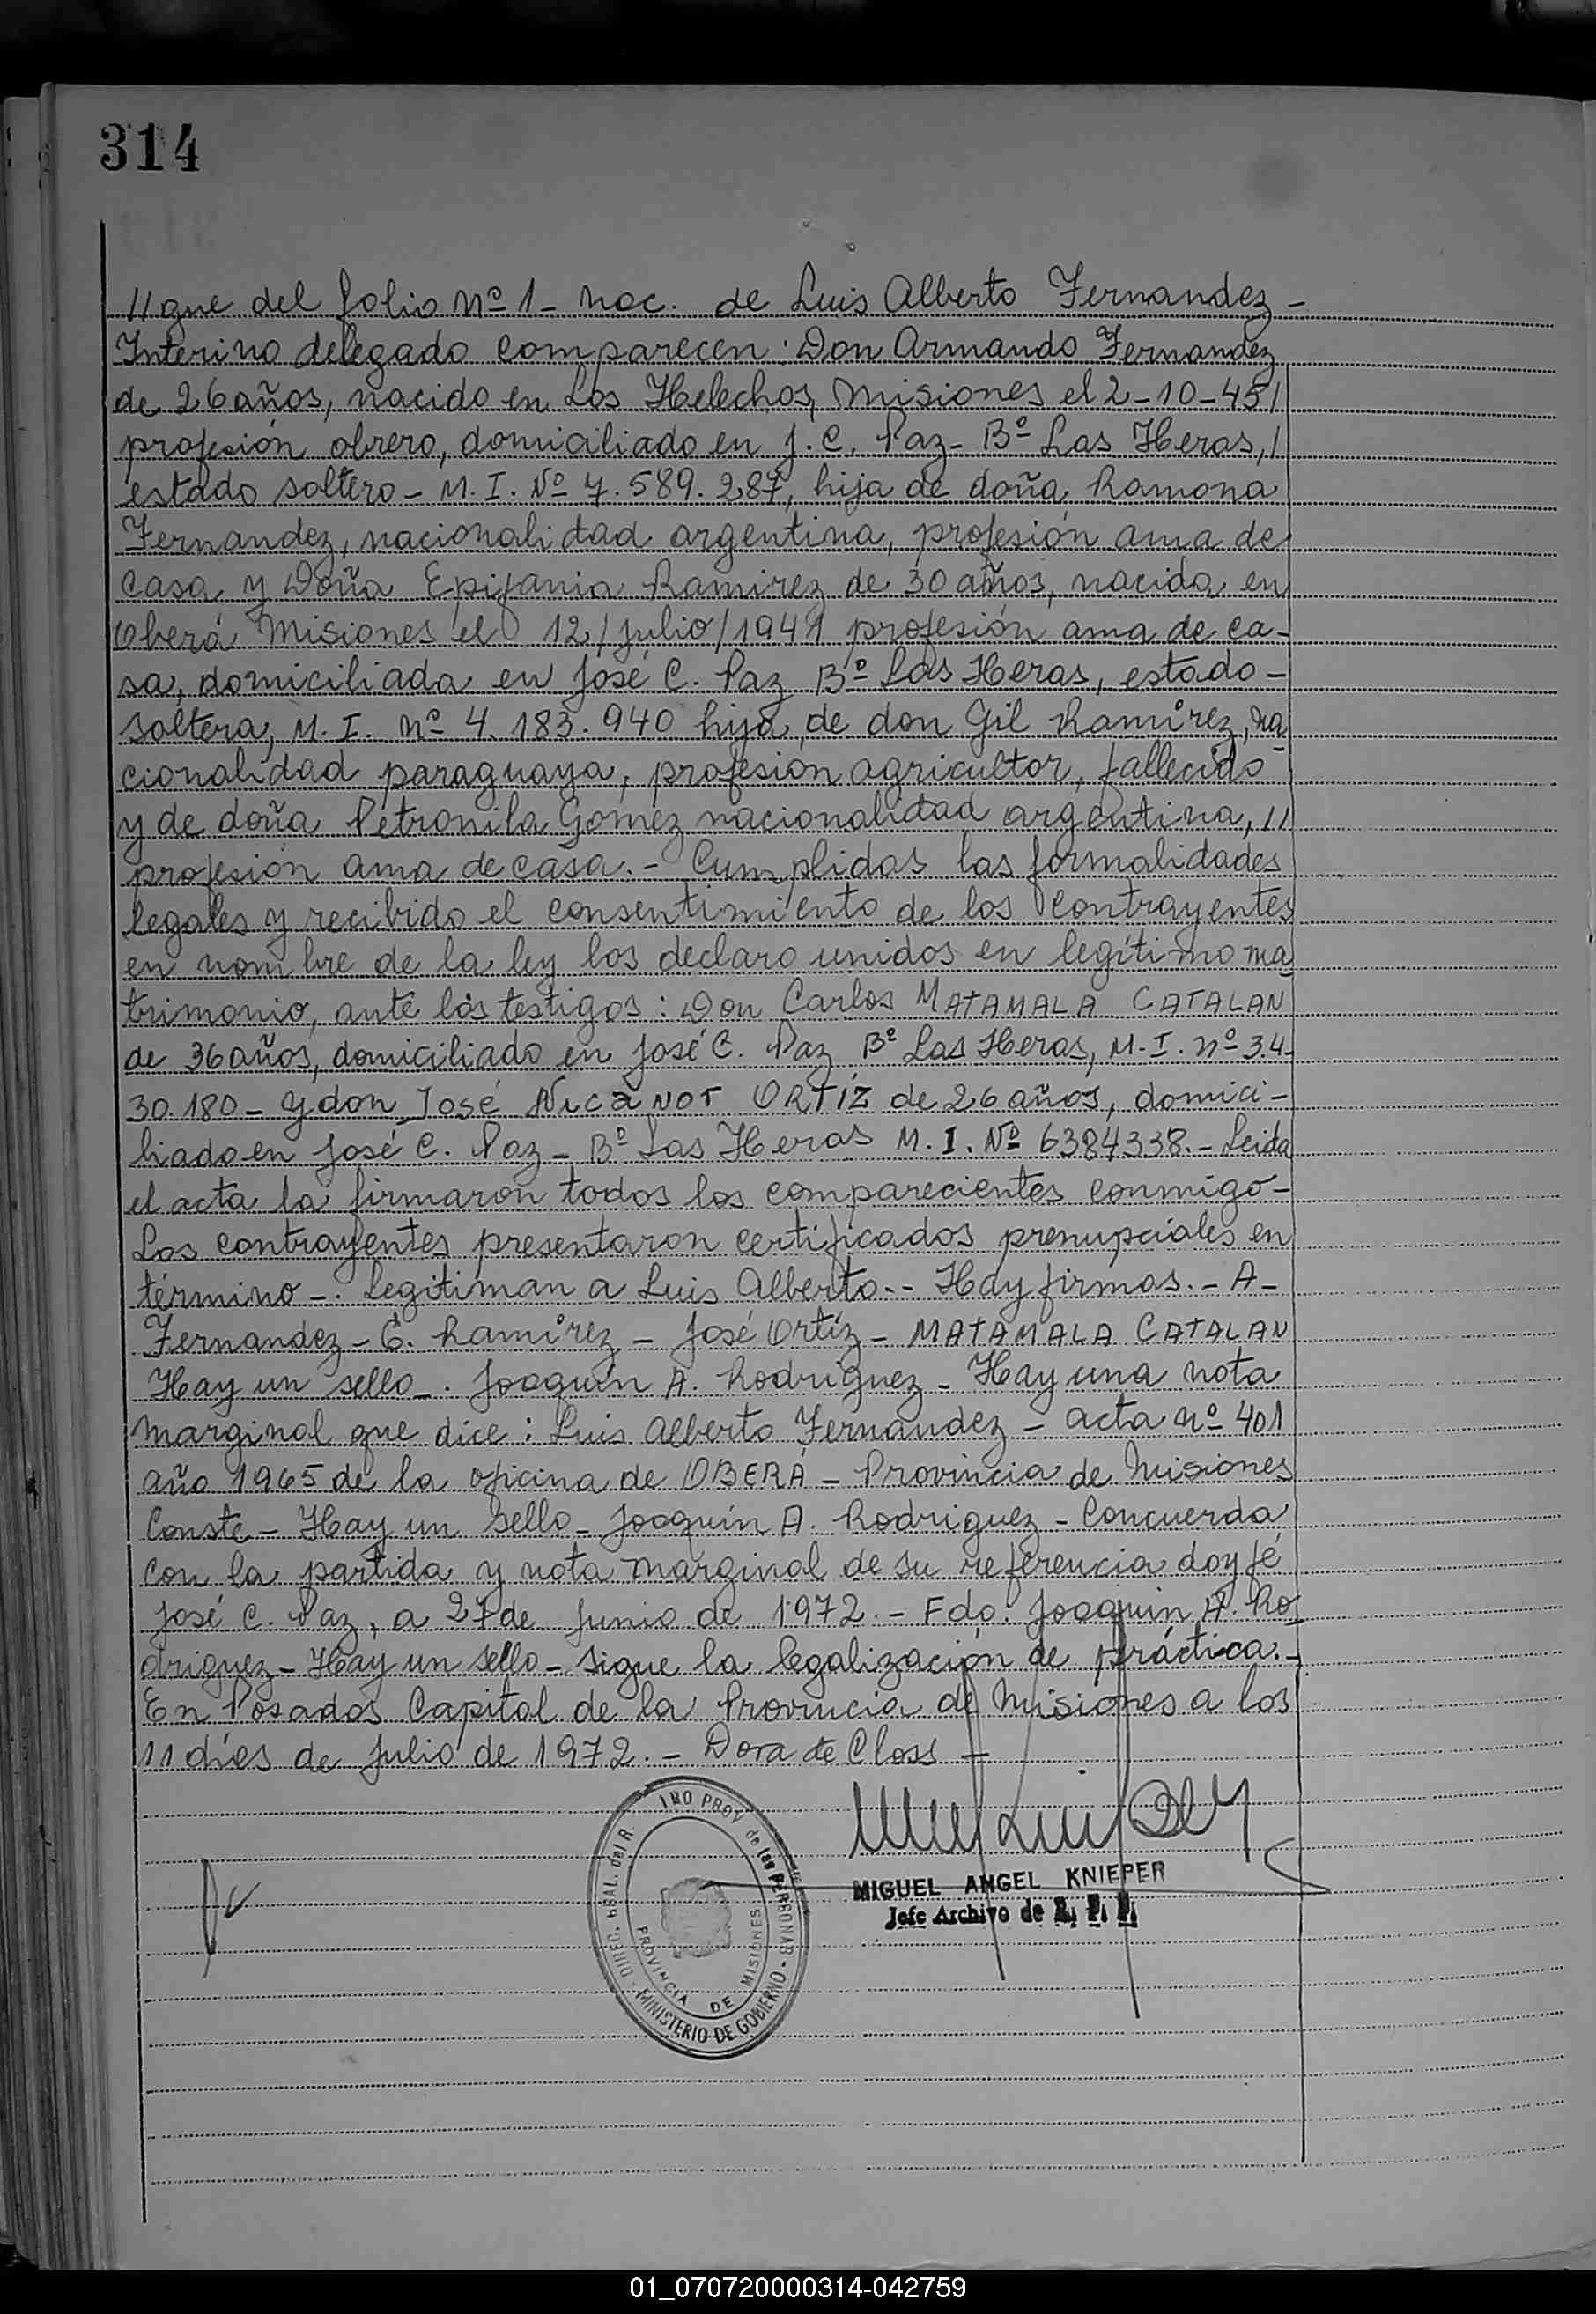 314
//gue del folio Nº 1- Nac. de Luis Alberto Fernandez -
Interino delegado comparecen: Don Armando Fernandez
de 26 años, nacido en Los Helechos, Misiones el 2-10-45/
profesión obrero, domiciliado en J. C. Paz- Bº Las Heras,/
estado soltero - M. I. Nº 7.589.287, hija de doña Ramona
Fernandez, nacionalidad argentina, profesión ama de
casa y Doña Epifania Ramirez de 30 años, nacida en
Oberá Misiones el 12/julio/1941 profesión ama de ca-
sa, domiciliada en José C. Paz Bº Las Heras, estado -
soltera, M. I. Nº 4.183.940 hija de don Gil Ramírez, na
cionalidad paraguaya, profesión agricultor, fallecido
y de doña Petronila Gómez nacionalidad argentina, //
profesión ama de casa.- Cumplidas las formalidades
legales y recibido el consentimiento de los contrayentes
en nombre de la ley los declaro unidos en legítimo ma
trimonio, ante los testigos: Don Carlos MATAMALA CATALAN
de 36 años, domiciliado en José C. Paz Bº Las Heras, M.I. Nº 3.4-
30.180 - y don José Nicanor ORTÍZ de 26 años, domici-
liado en José C. Paz - Bº Las Heras M. I. Nº 6384338.- Leida
el acta la firmaron todos los comparecientes conmigo-
Los contrayentes presentaron certificados prenupciales en
término -. Legitiman a Luis Alberto.- Hay firmas.- A-
Fernandez - E. Ramírez - José Ortíz - MATAMALA CATALAN
Hay un sello -. Joaquín A. Rodriguez - Hay una nota
marginal que dice: Luis Alberto Fernández - acta nº 401
año 1965 de la oficina de OBERÁ - Provincia de Misiones
Conste - Hay un sello - Joaquín A. Rodriguez - Concuerda
con la partida y nota marginal de su referencia doy fé
José C. Paz, a 27 de Junio de 1972.- Fdo. Joaquín A. Ro-
driguez - Hay un sello - sigue la legalización de práctica.-
En Posadas Capital de la Provincia de Misiones a los
11 días de Julio de 1972.- Dora de Closs -
PROV de las PERSONAS
MINISTERIO DE GOBIERNO
PROVINCIA DE MISIONES
MIGUEL ANGEL KNIEPER
Jefe Archivo de
01_070720000314-042759